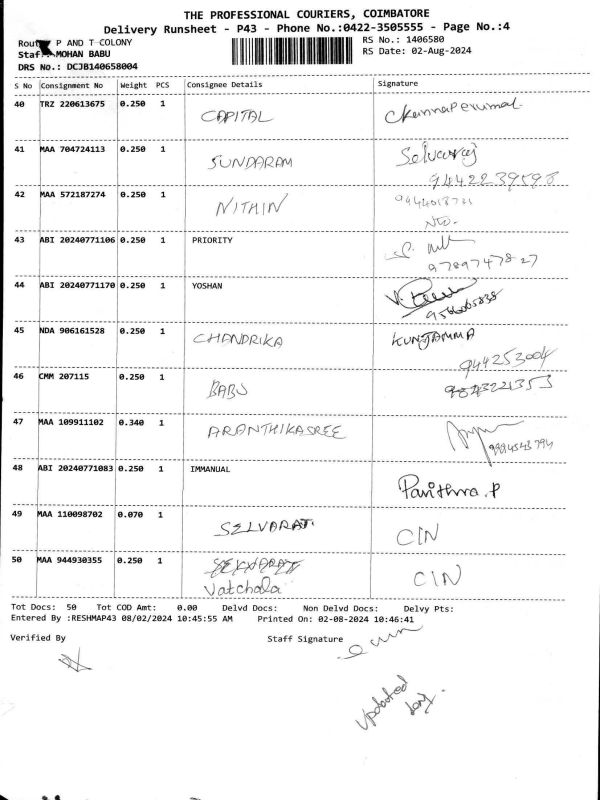 THE PROFESSIONAL COURIERS, COIMBATORE
Delivery Runsheet - P43 - Phone No.:0422-3505555 - Page No.:4
P AND T COLONY
RS No.: 1406580
Staf MOHAN BABU
RS Date: 02-Aug-2024
DRS No.: DCJB140658004
S No Consignment No Weight PCS Consignee Details Signature
40 TRZ 220613675 0.250 1 CAPITAL
41 MAA 704724113 0.250 1 SUNDARAM Selvaraj
9442239598
42 MAA 572187274 0.250 1 NITHIN
43 ABI 20240771106 0.250 1 PRIORITY
9789747827
44 ABI 20240771170 0.250 1 YOSHAN
45 NDA 906161528 0.250 1 CHANDRIKA KUNJAMMA
944253004
46 CMM 207115 0.250 1 BABU
47 MAA 109911102 0.340 1 ARANTHIKASREE
48 ABI 20240771083 0.250 1 IMMANUAL
Pavithra.P
49 MAA 110098702 0.070 1 SELVARAT CIN
50 MAA 944930355 0.250 1 CIN
Vatchala
Tot Docs: 50 Tot COD Amt: 0.00 Delvd Docs: Non Delvd Docs: Delvy Pts:
Entered By :RESHMAP43 08/02/2024 10:45:55 AM Printed On: 02-08-2024 10:46:41
Verified By Staff Signature
Updated